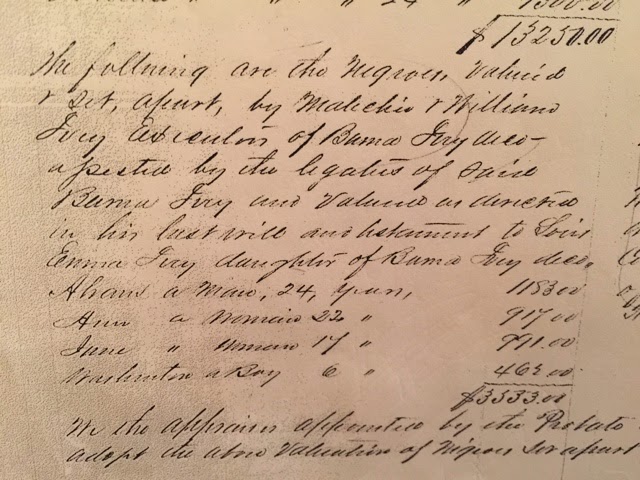 " " 24 " 1300.00
$13250.00
The following are the Negroes, Valued
& set, apart, by Malichia & William
Ivey Executors of Bama Ivey deco-
assisted by the legatees of said
Bama Ivey and Valued as directed
in his last will and testament to
Emma Ivey daughter of Bama Ivey deco.
Abram a Man, 24, years, 1183.00
Ann a Woman 22 " 917.00
Jane " Woman 17 "
Washington a Boy 6 "
$3333.00
We the appraisers appointed by the Probate
adopt the above Valuation of Negroes set apart